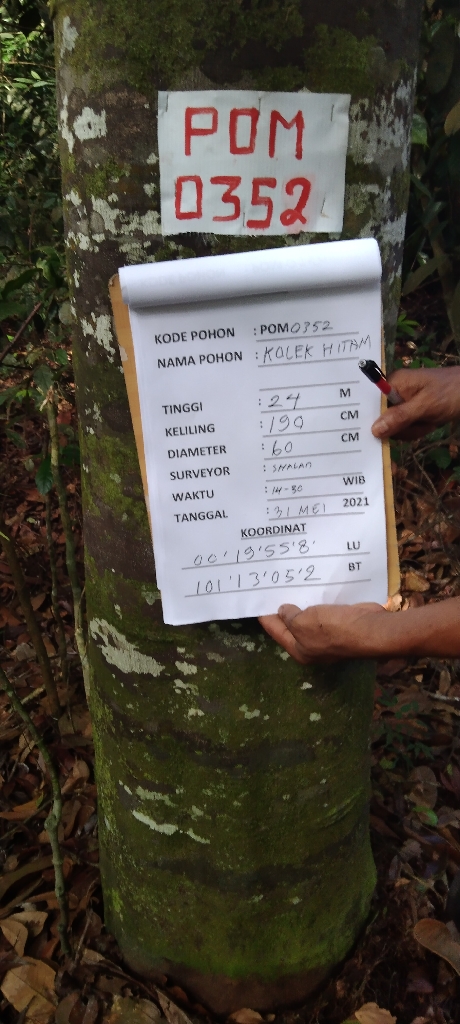 POM
0352
KODE POHON : POM0352
NAMA POHON : KOLEK HITAM
TINGGI : 24 M
KELILING : 190 CM
DIAMETER : 60 CM
SURVEYOR :
WAKTU : 14-30 WIB
TANGGAL : 31 MEI 2021
KOORDINAT
00'19'55'8' LU
101'13'05'2 BT